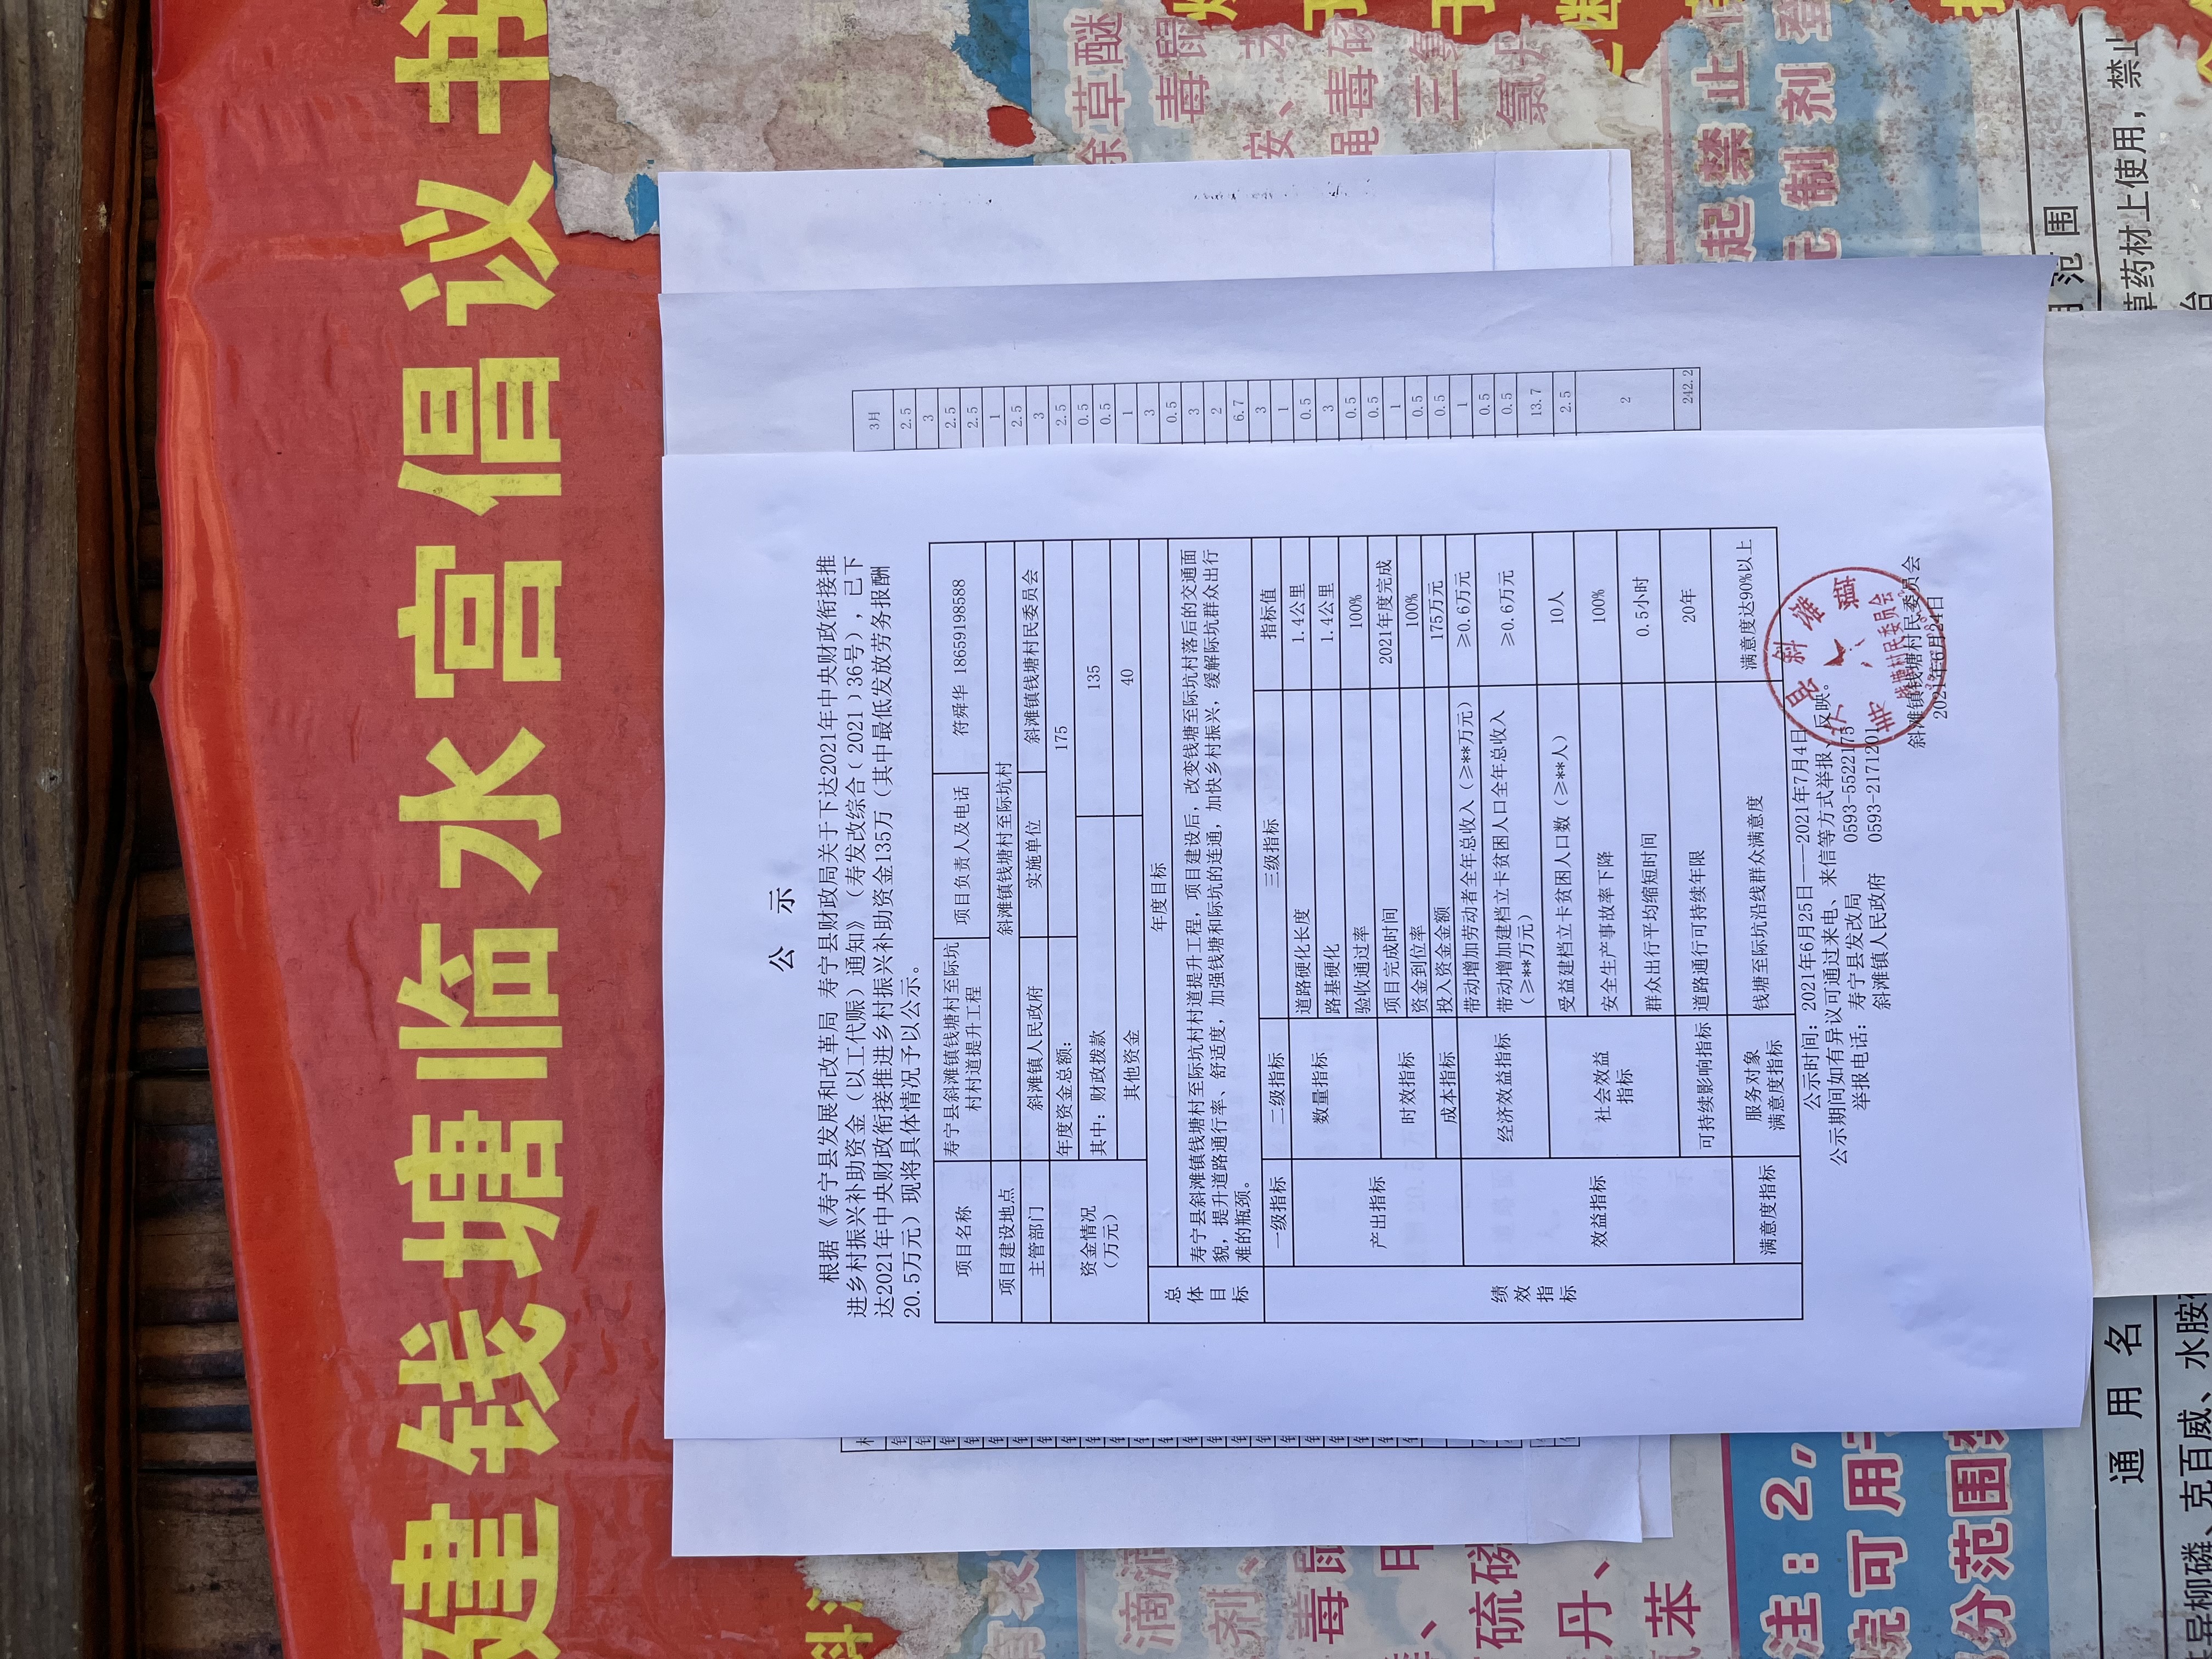 建钱塘临水宫倡议书
公 示
根据《寿宁县发展和改革局 寿宁县财政局关于下达2021年中央财政衔接推
进乡村振兴补助资金（以工代赈）通知》（寿发改综合（2021）36号），已下
达2021年中央财政衔接推进乡村振兴补助资金135万（其中最低发放劳务报酬
20.5万元）现将具体情况予以公示。
项目名称 寿宁县斜滩镇钱塘村至际坑村村道提升工程 项目负责人及电话 符舜华 18659198588
项目建设地点 斜滩镇钱塘村至际坑村
主管部门 斜滩镇人民政府 实施单位 斜滩镇钱塘村民委员会
资金情况（万元） 年度资金总额： 175
其中：财政拨款 135
其他资金 40
总体目标 年度目标
寿宁县斜滩镇钱塘村至际坑村村道提升工程，项目建设后，改变钱塘至际坑村落后的交通面
貌，提升道路通行率、舒适度，加强钱塘和际坑的连通，加快乡村振兴，缓解际坑群众出行
难的瓶颈。
绩效指标 一级指标 二级指标 三级指标 指标值
产出指标 数量指标 道路硬化长度 1.4公里
路基硬化 1.4公里
验收通过率 100%
时效指标 项目完成时间 2021年度完成
资金到位率 100%
成本指标 投入资金金额 175万元
效益指标 经济效益指标 带动增加劳动者全年总收入（≥**万元） ≥0.6万元
带动增加建档立卡贫困人口全年总收入（≥**万元） ≥0.6万元
社会效益指标 受益建档立卡贫困人口数（≥**人） 10人
安全生产事故率下降 100%
群众出行平均缩短时间 0.5小时
可持续影响指标 道路通行可持续年限 20年
满意度指标 服务对象满意度指标 钱塘至际坑沿线群众满意度 满意度达90%以上
公示时间：2021年6月25日——2021年7月4日
公示期间如有异议可通过来电、来信等方式举报、反映。
举报电话：寿宁县发改局 0593-5522175
斜滩镇人民政府 0593-2171201
斜滩镇钱塘村民委员会
2021年6月24日
3月
2.5
3
2.5
2.5
1
2.5
3
2.5
0.5
0.5
1
3
0.5
3
2
6.7
3
1
0.5
3
0.5
0.5
1
0.5
0.5
1
0.5
0.5
13.7
2.5
2
242.2
除草醚
毒鼠
三氯
起禁止
制剂
范围
草药材上使用，禁止
注：2，
可用
份范围
通用名
克百威、水胺